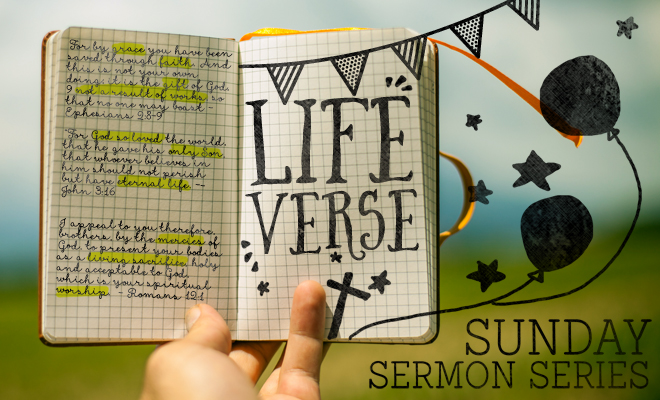 For by grace you have been
saved through faith. And
this is not your own
doing; it is the gift of God,
9 not a result of works, so
that no one may boast -
Ephesians 2:8-9
For God so loved the world,
that he gave his only son,
that whoever believes in
him should not perish
but have eternal life. -
John 3:16
I appeal to you therefore,
brothers, by the mercies of
God, to present your bodies
as a living sacrifice, holy
and acceptable to God,
which is your spiritual
worship. - Romans 12:1
LIFE
VERSE
SUNDAY
SERMON SERIES